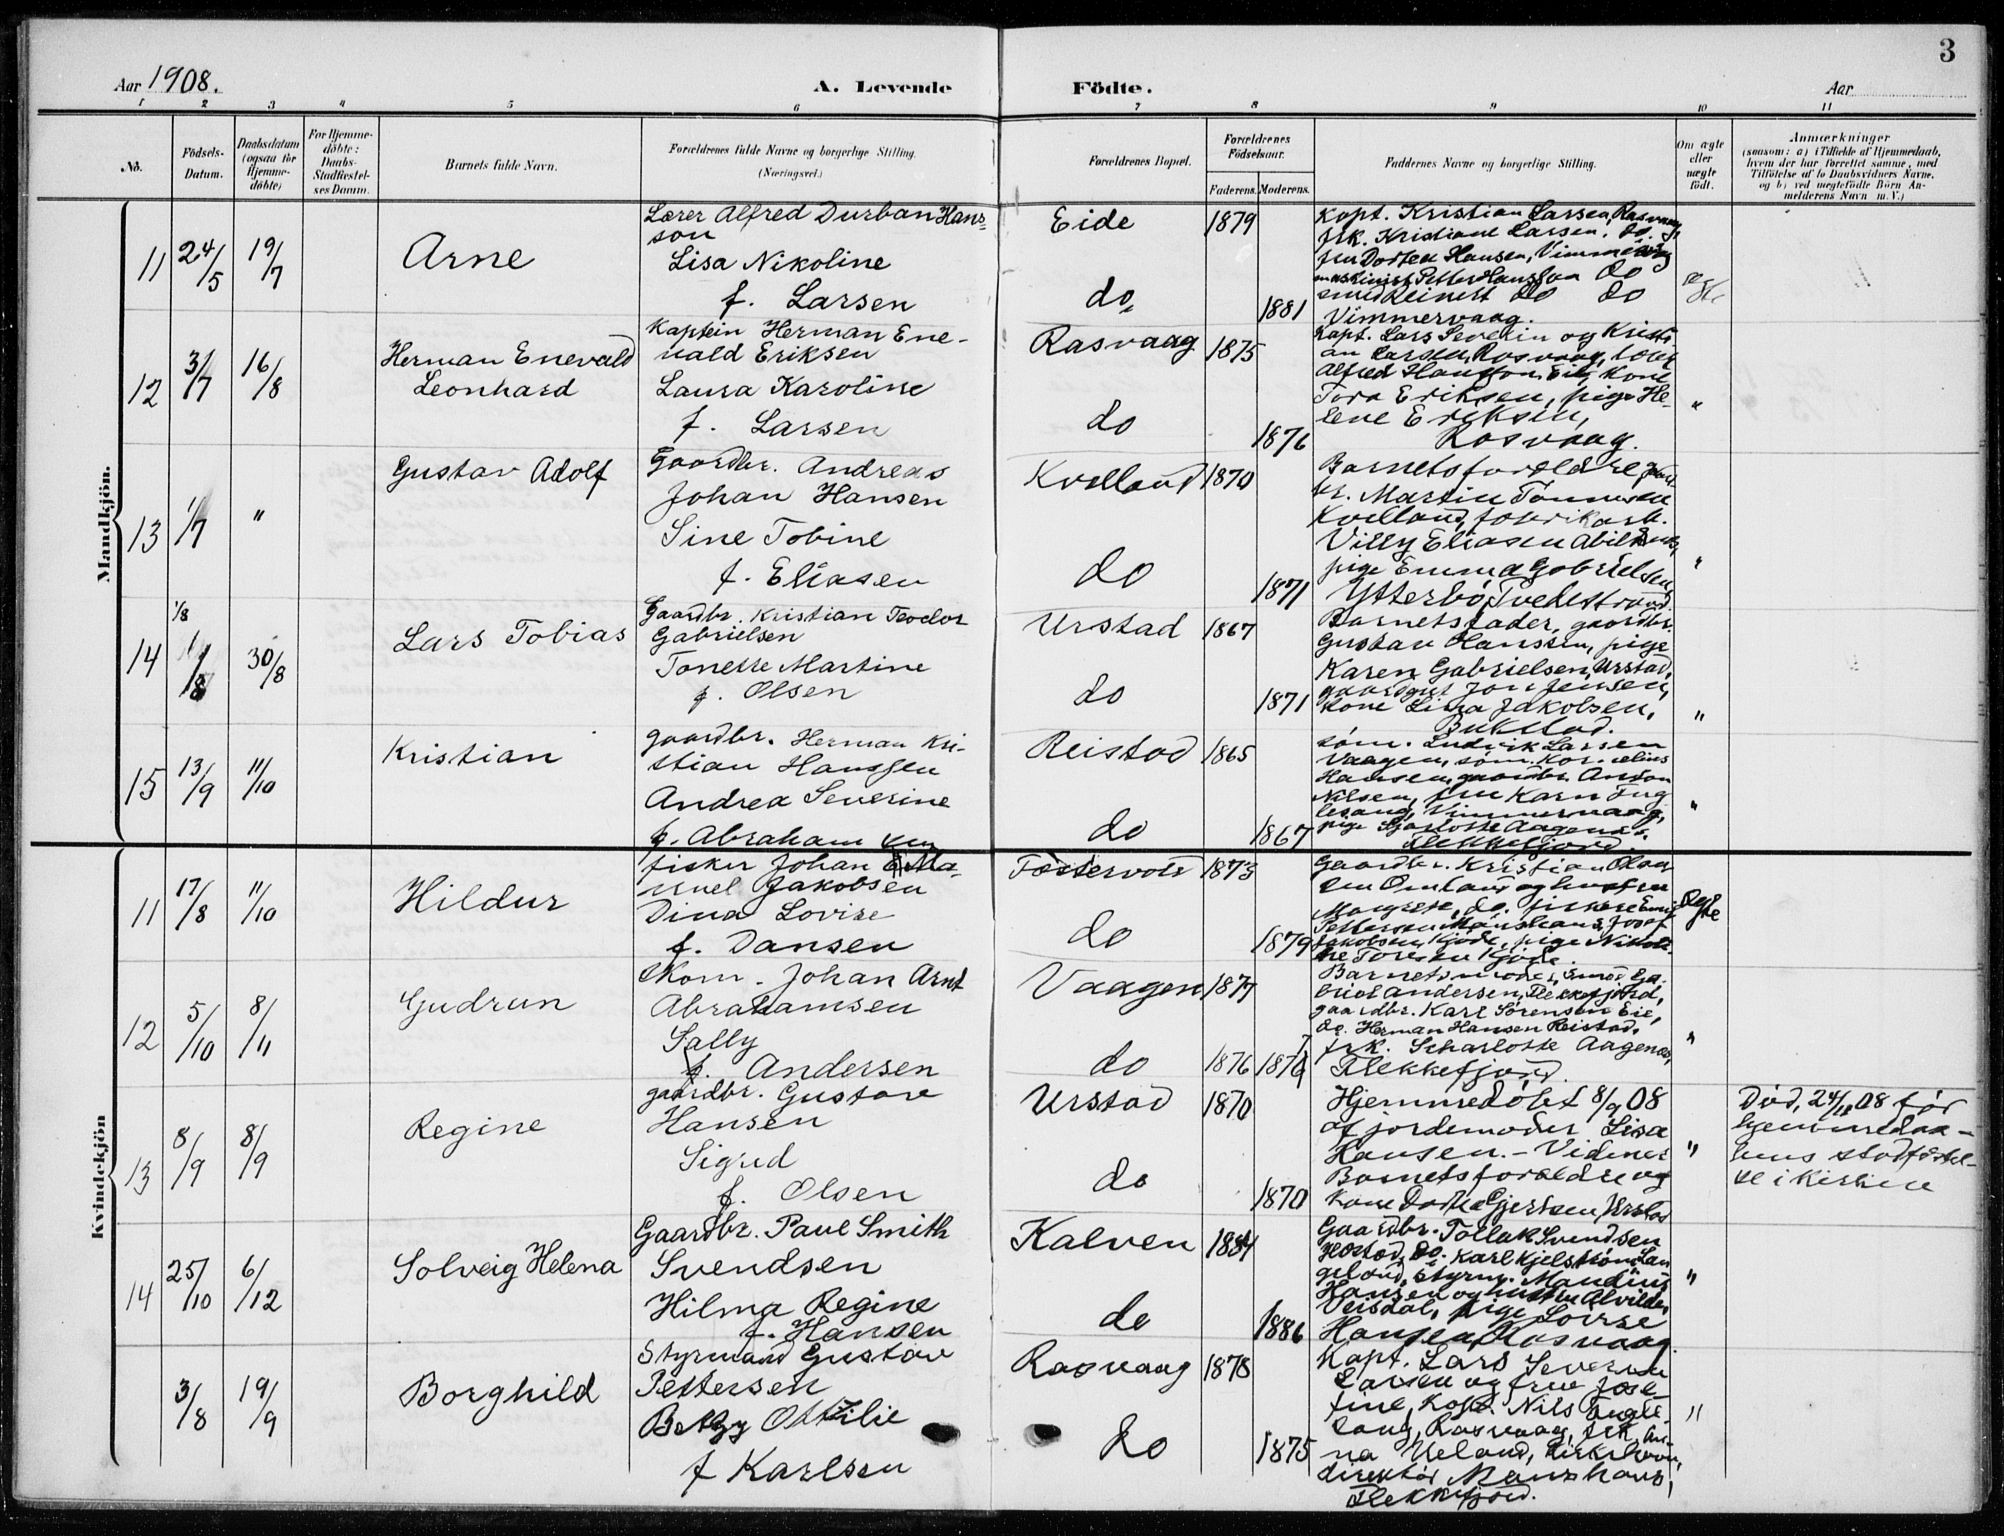 3
Aar 1908.
A. Levende Födte.
Aar
1 2 3 4 5 6 7 8 9 10 11
No.
Födsels-Datum.
Daabsdatum (ogsaa for Hjemme-döbte)
For Hjemme-döbte: Daabs-Stadfæstel-ses Datum.
Barnets fulde Navn.
Forældrenes fulde Navne og borgerlige Stilling. (Næringsvei.)
Forældrenes Bopæl.
Forældrenes Födselsaar.
Faderens. Moderens.
Faddernes Navne og borgerlige Stilling.
Om ægte eller uægte födt.
Anmærkninger
(saasom: a) i Tilfælde af Hjemmedaab,
hvem der har forrettet samme, med
Tilföielse af to Daabsvidners Navne.
og b) ved uægtefödte Börn An-
melderens Navn m. V.)
Mandkjön.
11 24/5 19/7
Arne
Lærer Alfred Durban Hans-
son
Lisa Nikoline
f. Larsen
Eide 1879
do 1881
Kopt. Kristian Larsen, Rasvaag,
frk. Kristiane Larsen. do.
fru Dortea Hansen, Vimmervaag
maskinist Petter Hansson do
smed Reinert do do
Vimmervaag.
ægte
12 3/7 16/8
Herman Enevald
Leonhard
Kaptein Herman Ene-
vald Eriksen
Laura Karoline
f. Larsen
Rasvaag 1875
do 1876
Kapt. Lars Severin og Kristi-
an Larsen, Rasvaag,
Alfred Hansson Eie, kone
Tora Eriksen, pige He-
lene Eriksen,
Rasvaag.
"
13 1/7 "
Gustav Adolf
Gaardbr. Andreas
Johan Hansen
Sine Tobine
f. Eliasen
Kvelland 1870
do 1871
Barnets forældre,
br. Martin Tønnesen
Kvelland, fabrikarb.
Villy Eliasen
pige Emma Gabrielsen
Ytterbø, Tvedestrand.
"
14 1/8
1/8 30/8
Lars Tobias
Gaardbr. Kristian Teodor
Gabrielsen
Tonette Martine
f. Olsen
Urstad 1867
do 1871
Barnets fader, gaardbr.
Gustav Hanssen, pige
Karen Gabrielsen, Urstad,
gaardgut Jon Jensen,
kone Lina Jakobsen,
"
15 13/9 11/10
Kristian
gaardbr. Herman Kri-
stian Hanssen
Andrea Severine
f. Abrahamsen
Reistad 1865
do 1867
søm. Ludvik Larsen
Vaagen, søm. Kornelius
Hansen, gaardbr. Anton
Nilsen, fru Karn Fug
lesang, Vimmervaag,
pige Sjarlotte Aagenæs,
Flekkefjord.
"
Kvindekjön
11 17/8 11/10
Hildur
fisker Johan Ema-
nuel Jakobsen
Dina Lovise
f. Dansen
1873
do 1879
Gaardbr. Kristian Olau
sen Omland og hustru
Margrete, do. fiskere
Pettersen Maanshavn, Josef
Jakobsen, Kjøde, pige Nikoli
ne Toresen Kjøde.
Ægte
12 5/10 8/11
Gudrun
Ekom. Johan Arnt
Abrahamsen
Sally
f. Andersen
Vaagen 1877
do 1876 1876 7
Barnets moder, smed Ga-
briel Andersen, Flekkefjord,
gaardbr. Karl Sørensen Eie,
do. Herman Hansen Reistad,
frk. Scharlotte Aagenæs,
Flekkefjord.
"
13 8/9 8/9
Regine
gaardbr. Gustav
Hansen
Sigrid
f. Olsen
Urstad 1870
do 1870
Hjemmedøbt 8/9 08
af jordemoder Lisa
Hansen. - Vidner
Barnets forældre og
kone Dorthe Gjertsen, Urstad
"
Død, 24/ 08 før
hjemmedaa-
bens stadfæstel-
se i kirken
14 25/10 6/12
Solveig Helena
Gaardbr. Paul Smith
Svendsen
Hilma Regine
f. Hansen
Kalven 1884
do 1886
Gaardbr. Tollak Svendsen
do. Karl Kjelstrøm Lan
geland, styrm. Maudius
Hansen og hustru Alvilde,
Veisdal, pige Lovise
Hansen, Rasvaag
"
3/8 19/9
Borghild
Styrmand Gustav
Pettersen
Betzy Ottilie
f Karlsen
Rasvaag 1878
do 1875
Kapt. Lars Severin
Larsen og frue Jose-
fine, Kapt. Nils Fugle-
sang, Rasvaag, frk. An-
na Ueland, Kirkehavn,
direktør Manshaus,
Flekkefjord.
"